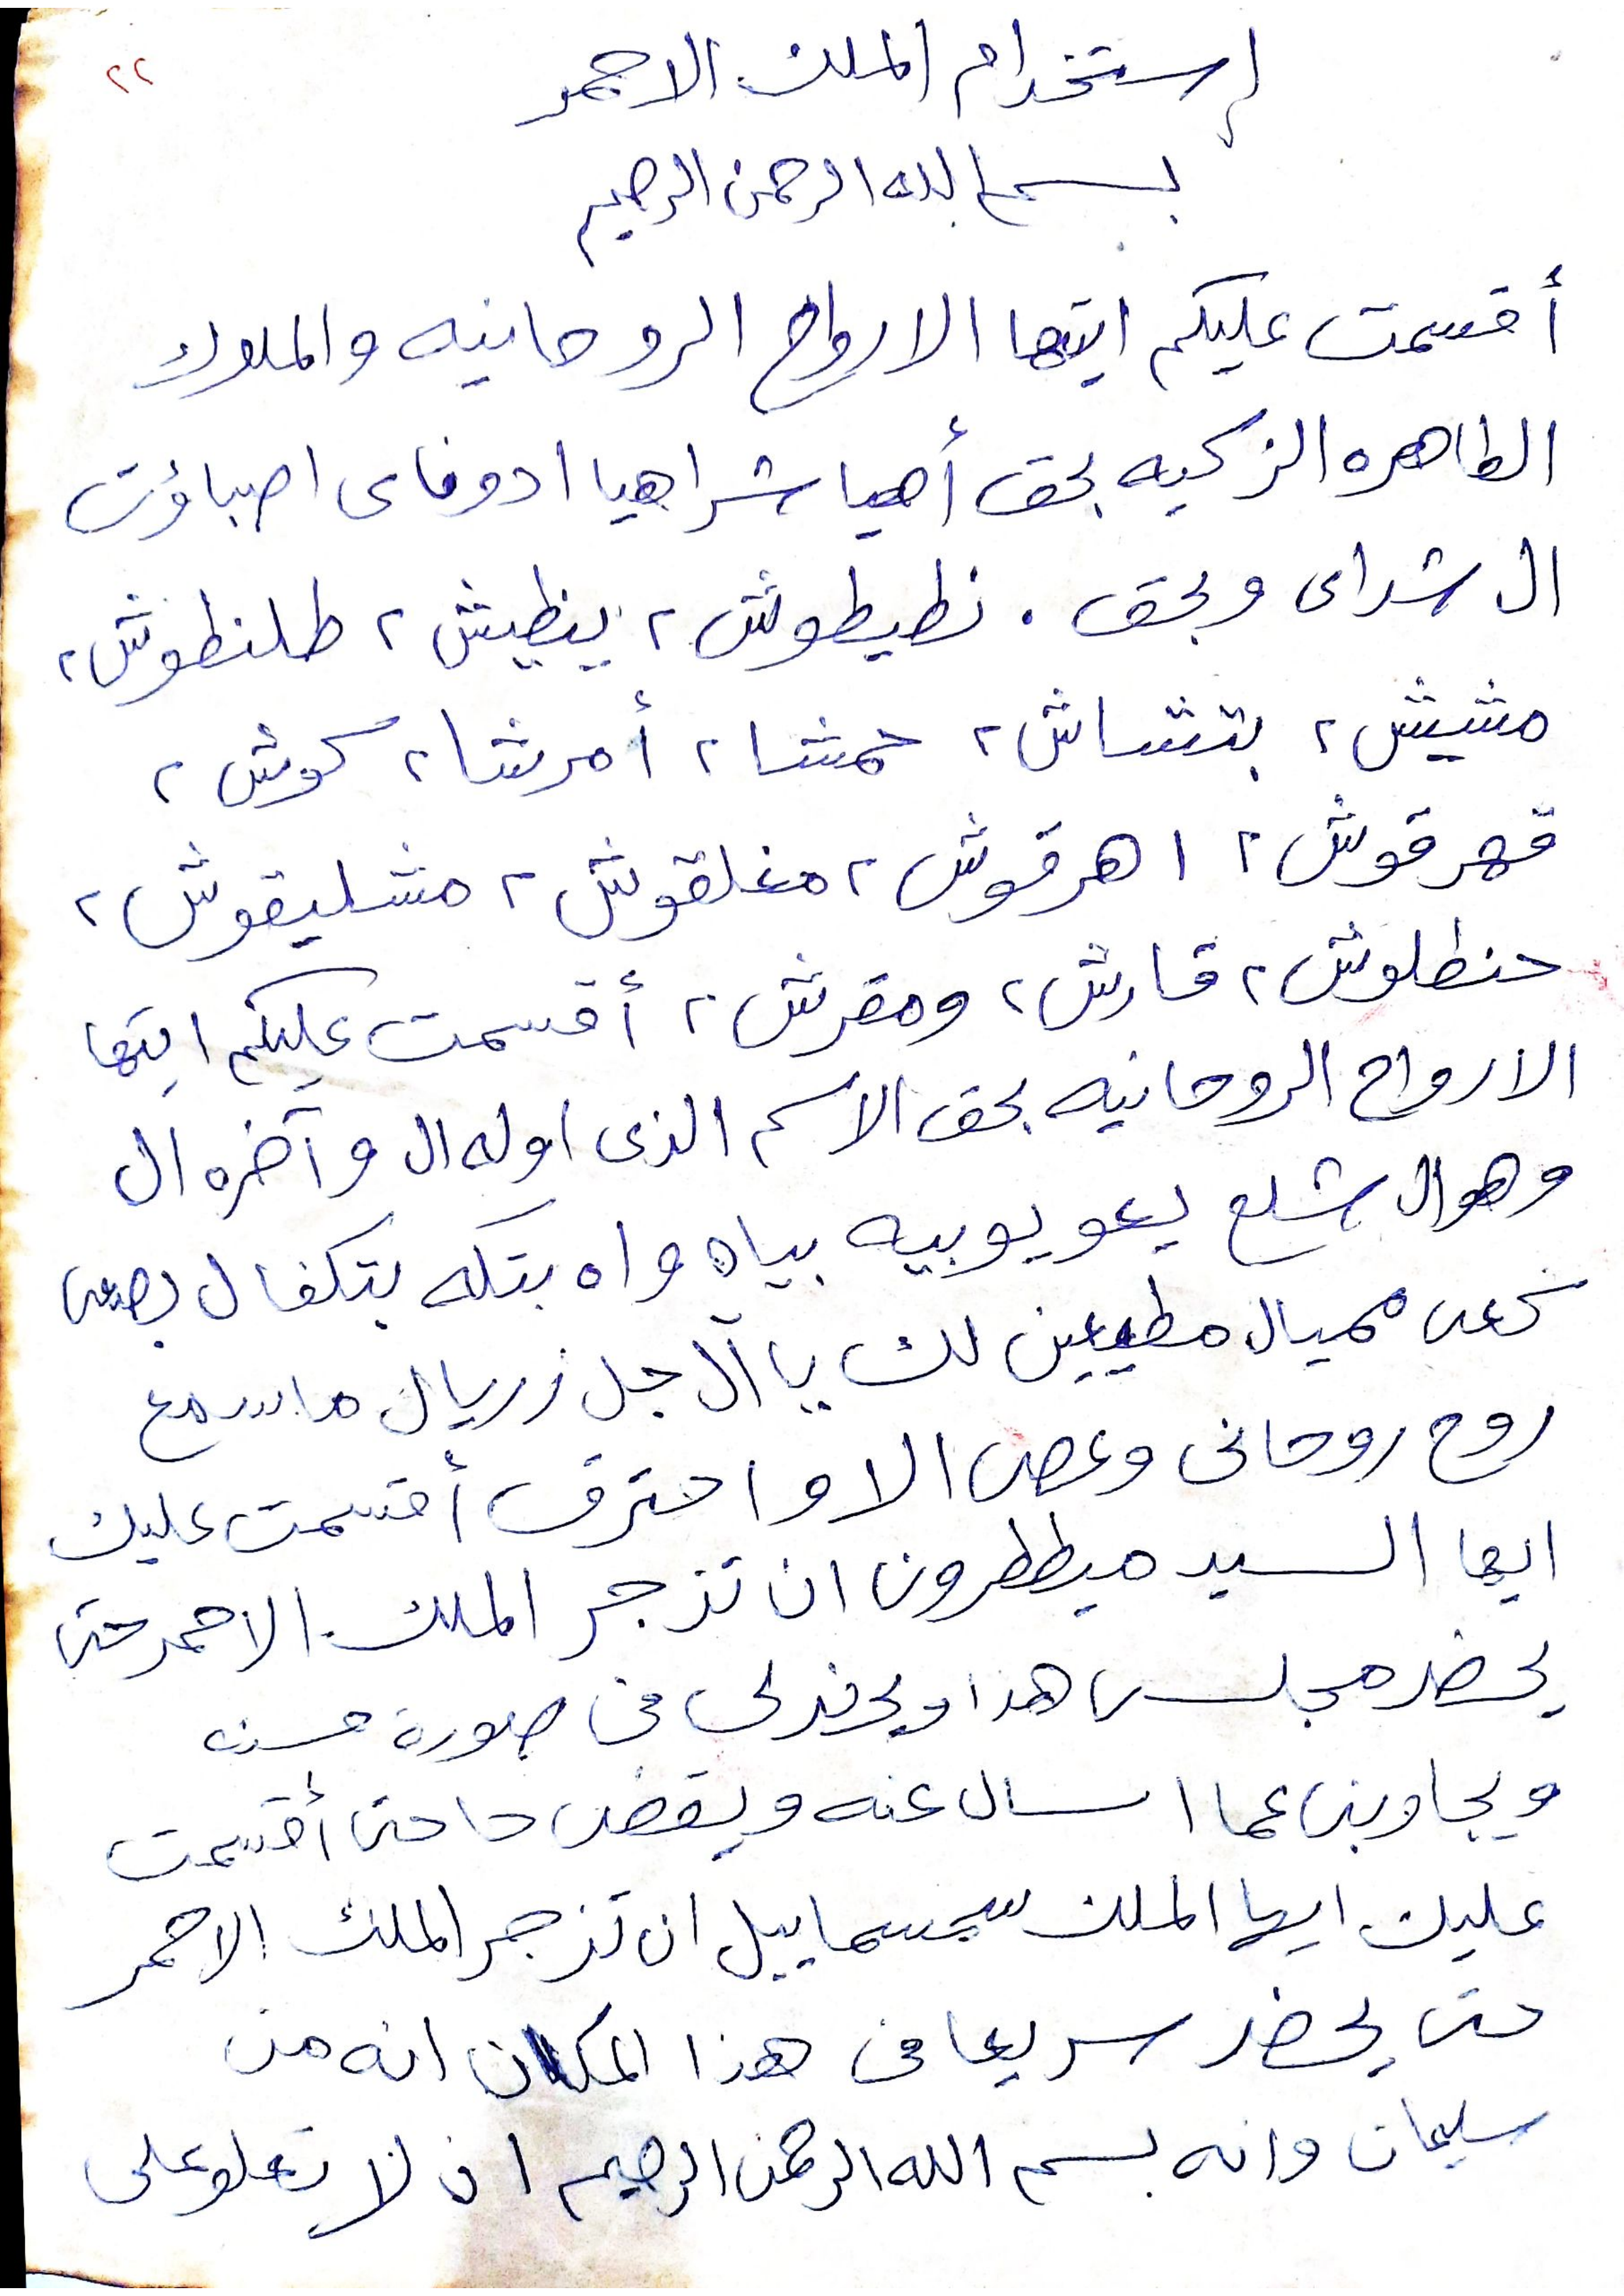 ٢٢
إستخدام الملك الاحمر
بسم الله الرحمن الرحيم
أقسمت عليكم ايتها الارواح الروحانيه والملوك
الطاهره الزكيه بحق أهيا شراهيا ادوناى اصباؤت
ال شداى وبحق . نطيطوش ٢ ينظيش ٢ طلنطوش ٢
مشيش ٢ بتشاش ٢ حمشا ٢ أمرشا ٢ كوش ٢
قهرقوش ٢ اهرقوش ٢ مغلقوش ٢ مشليقوش ٢
حنطلوش ٢ قارش ٢ ومقرش ٢ أقسمت عليكم ايتها
الارواح الروحانيه بحق الاسم الذى اوله ال وآخره ال
وهو ال شلع يعو يوبيه بياه واه بتكه بتكفال بصعى
كعى مميال مطيعين لك يا آل جل زريال ماسمع
روح روحانى وعصى الا واحترق أقسمت عليك
ايها السيد ميططرون ان تزجر الملك الاحمر حتى
يحضر مجلسى هذا فى صورة حسنه
ويجاوبنى عما اسال عنه ويقضى حاجتى أقسمت
عليك ايها الملك سمسماييل ان تزجر الملك الاحمر
حتى يحضر سريعا فى هذا المكان انه من
سليمان وانه بسم الله الرحمن الرحيم ان لا تعلو على